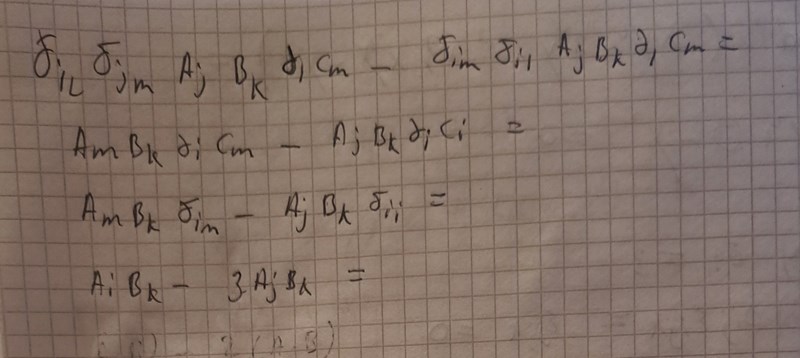 δ_{il} δ_{jm} A_j B_k ∂_l C_m − δ_{im} δ_{jl} A_j B_k ∂_l C_m =
A_m B_k ∂_i C_m − A_j B_k ∂_j C_i =
A_m B_k δ_{im} − A_j B_k δ_{ij} =
A_i B_k − 3 A_j B_k =